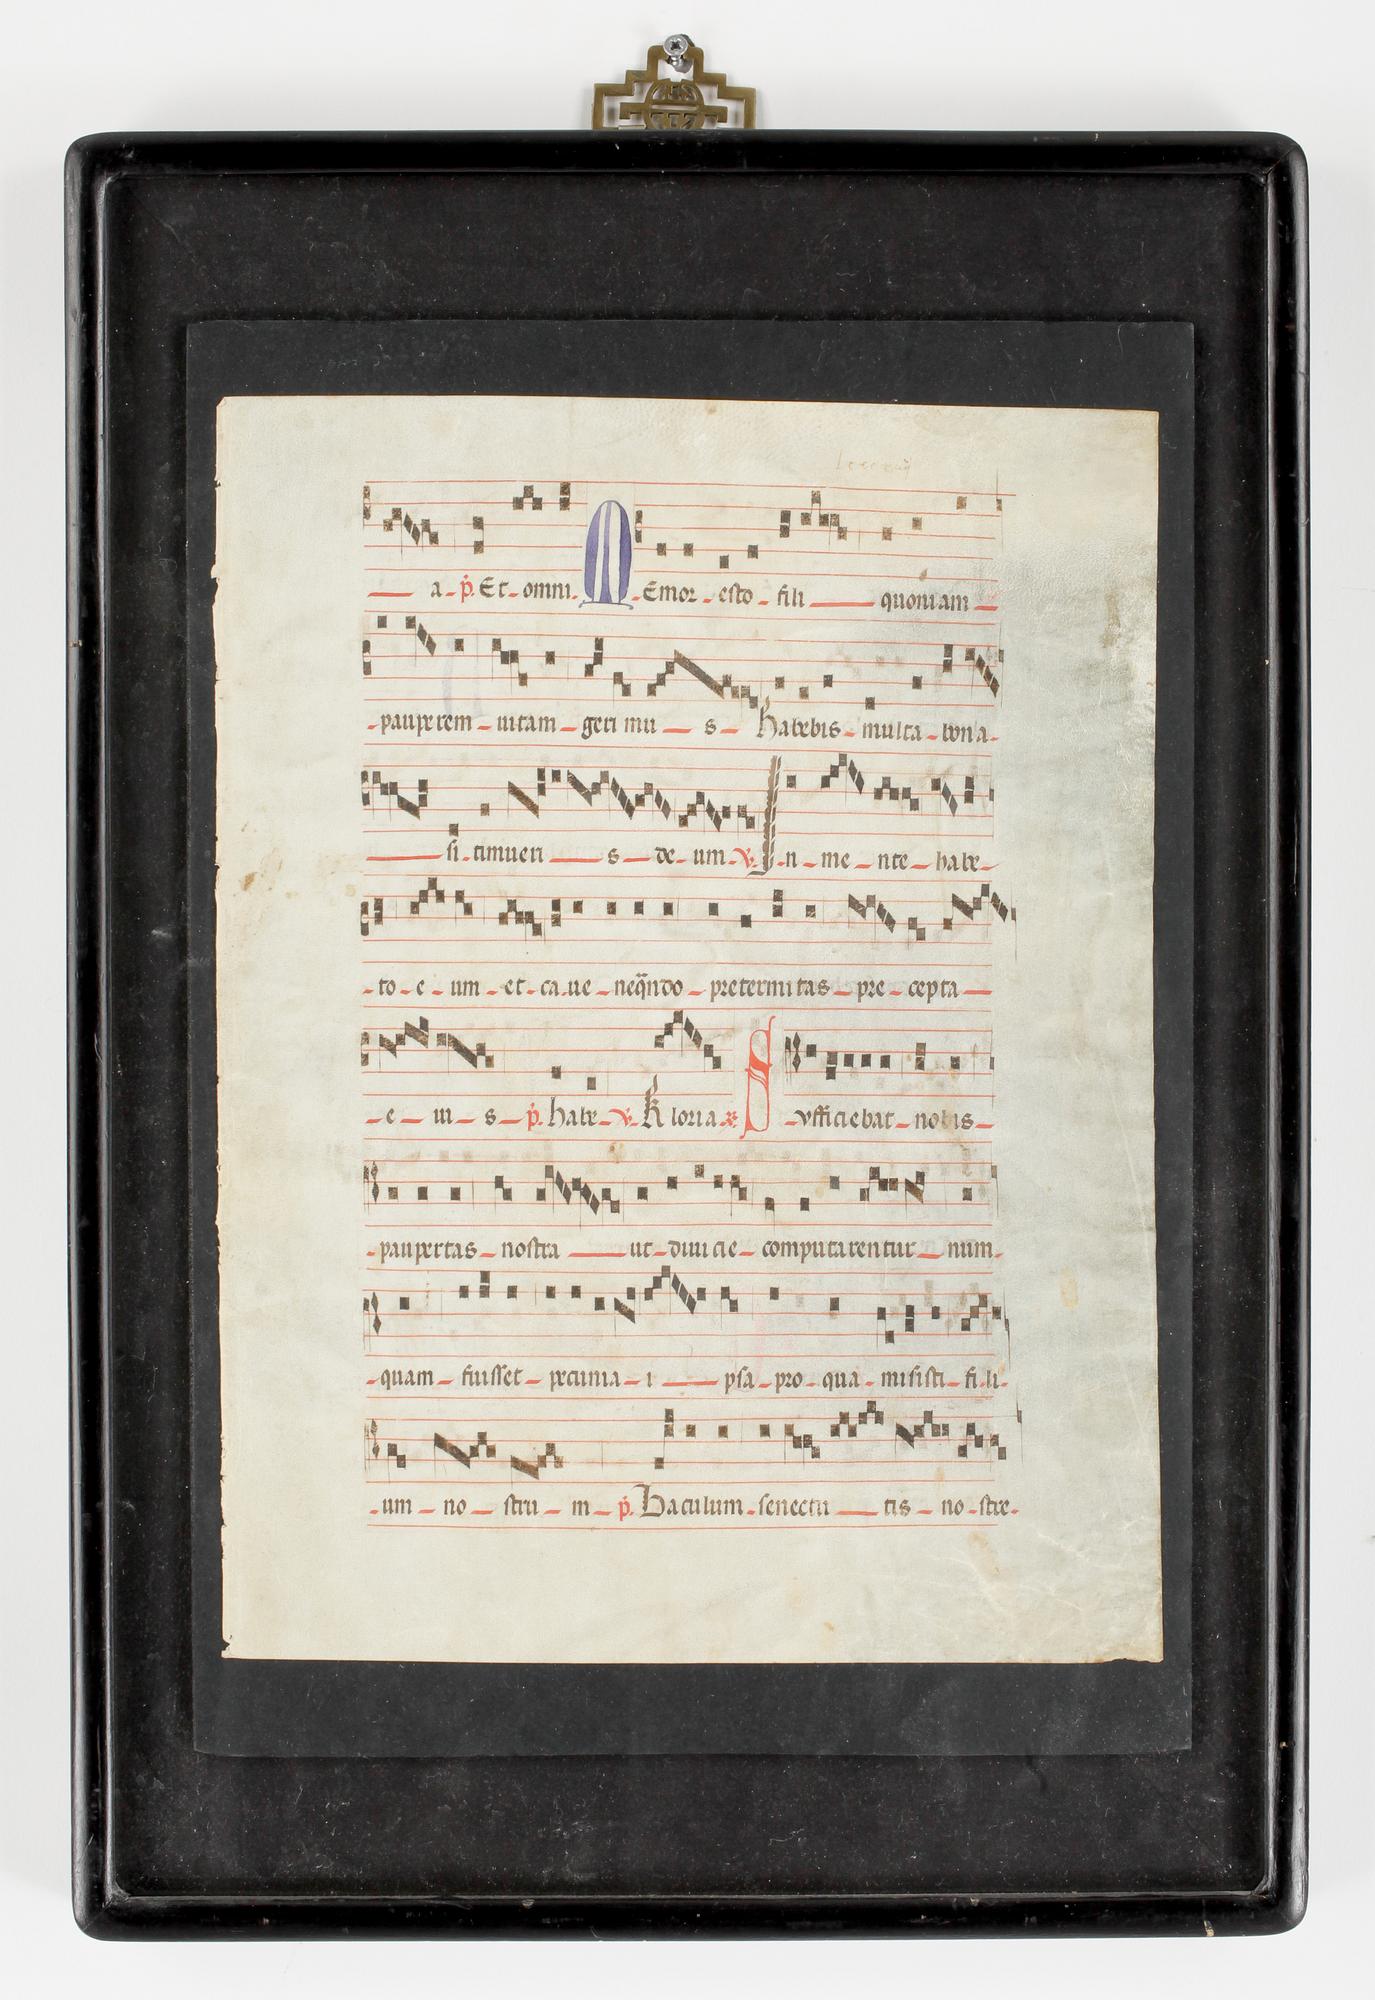 a p. Et omni M Emor esto fili quoniam
pauperem uitam geri mu s habebis multa bona
si timueri s de um V. In me nte habe
to e um et ca ue neq̃ndo pretermi tas pre cepta
e iu s p. habe V. Gloria R. S ufficiebat nobis
paupertas nostra ut diuicie computarentur num
quam fuisset pecunia i psa pro qua misisti fi li
um no stru m p. Baculum senectu tis no stre